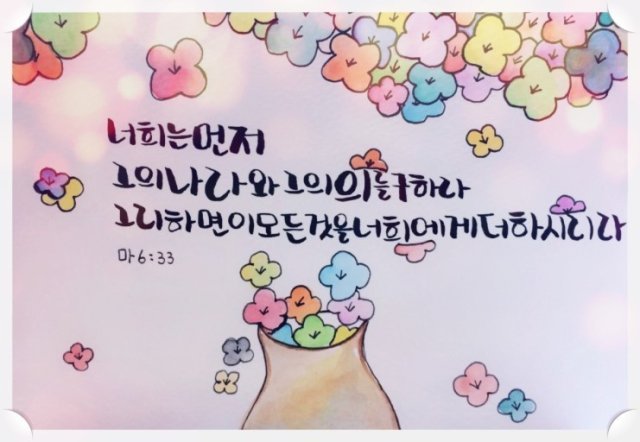 너희는먼저
그의나라와그의의를구하라
그리하면이모든것을너희에게더하시리라
마6:33